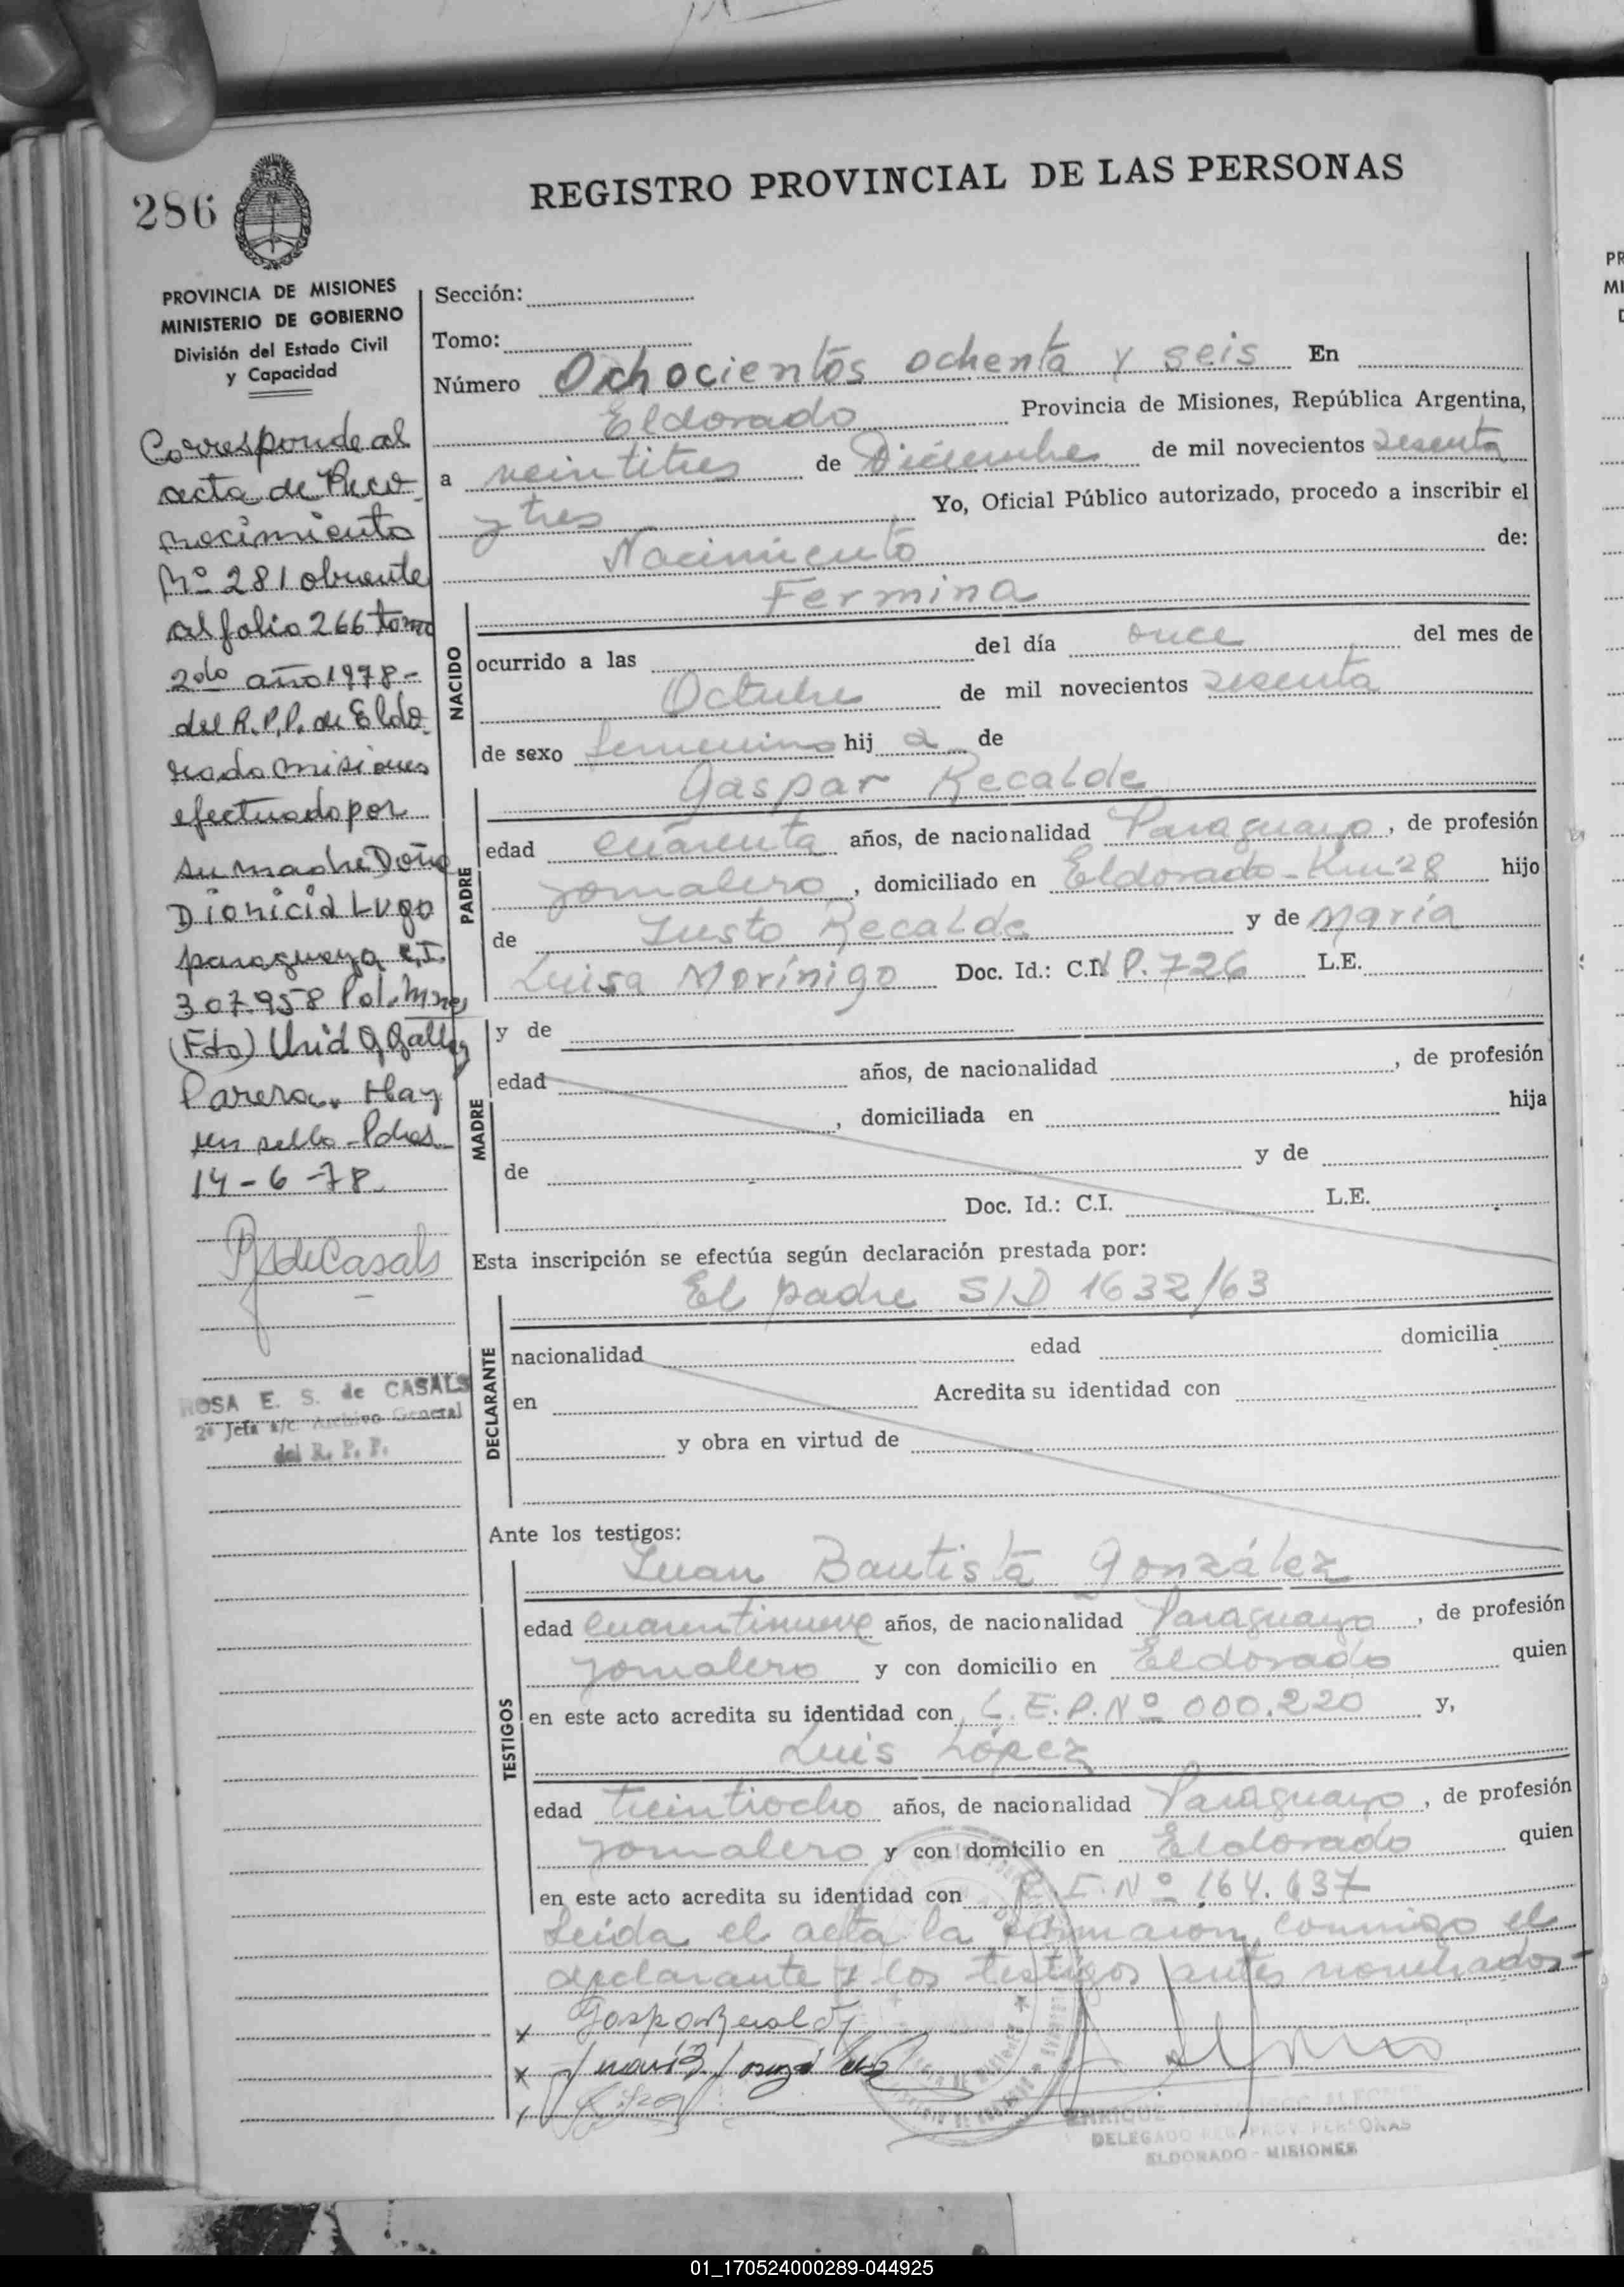 286
REGISTRO PROVINCIAL DE LAS PERSONAS
PROVINCIA DE MISIONES
MINISTERIO DE GOBIERNO
División del Estado Civil
y Capacidad
Corresponde al
acta de Reco-
nocimiento
Nº 281 obrante
al folio 266 tomo
2do año 1978-
del R.P.P. de Eldo-
rado Misiones
efectuado por
su madre Doña
Dionicia Lugo
paraguaya C.I.
307.958 Pol. Mnes
(Fdo)
Parera. Hay
un sello - Pdas
14-6-78
RSdeCasals
ROSA E. S. de CASALS
2º Jefa a/c Archivo General
del R. P. P.
Sección:
Tomo:
Número Ochocientos ochenta y seis En
Eldorado Provincia de Misiones, República Argentina,
a veintitres de Diciembre de mil novecientos sesenta
y tres Yo, Oficial Público autorizado, procedo a inscribir el
Nacimiento de:
Fermina
NACIDO
ocurrido a las del día once del mes de
Octubre de mil novecientos sesenta
de sexo femenino hij a de
Gaspar Recalde
PADRE
edad cuarenta años, de nacionalidad Paraguayo, de profesión
jornalero, domiciliado en Eldorado - Km 28 hijo
de Justo Recalde y de María
Luisa Morínigo Doc. Id.: C.I. P. 726 L.E.
MADRE
y de
edad años, de nacionalidad , de profesión
, domiciliada en hija
de y de
Doc. Id.: C.I. L.E.
Esta inscripción se efectúa según declaración prestada por:
El padre S/D 1632/63
DECLARANTE
nacionalidad edad domicilia
en Acredita su identidad con
y obra en virtud de
Ante los testigos:
Juan Bautista González
TESTIGOS
edad cuarentinueve años, de nacionalidad Paraguayo, de profesión
jornalero y con domicilio en Eldorado quien
en este acto acredita su identidad con C.E.P. Nº 000.220 y,
Luis López
edad treintiocho años, de nacionalidad Paraguayo, de profesión
jornalero y con domicilio en Eldorado quien
en este acto acredita su identidad con Nº 164.637
Leída el acta la firmaron conmigo el
declarante y los testigos antes nombrados-
ENRIQUE
DELEGADO REG. PROV. PERSONAS
ELDORADO - MISIONES
01_170524000289-044925